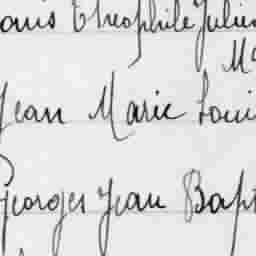 ouis Théophile Julien
Ma
Jean Marie Loui
Georges Jean Bapt